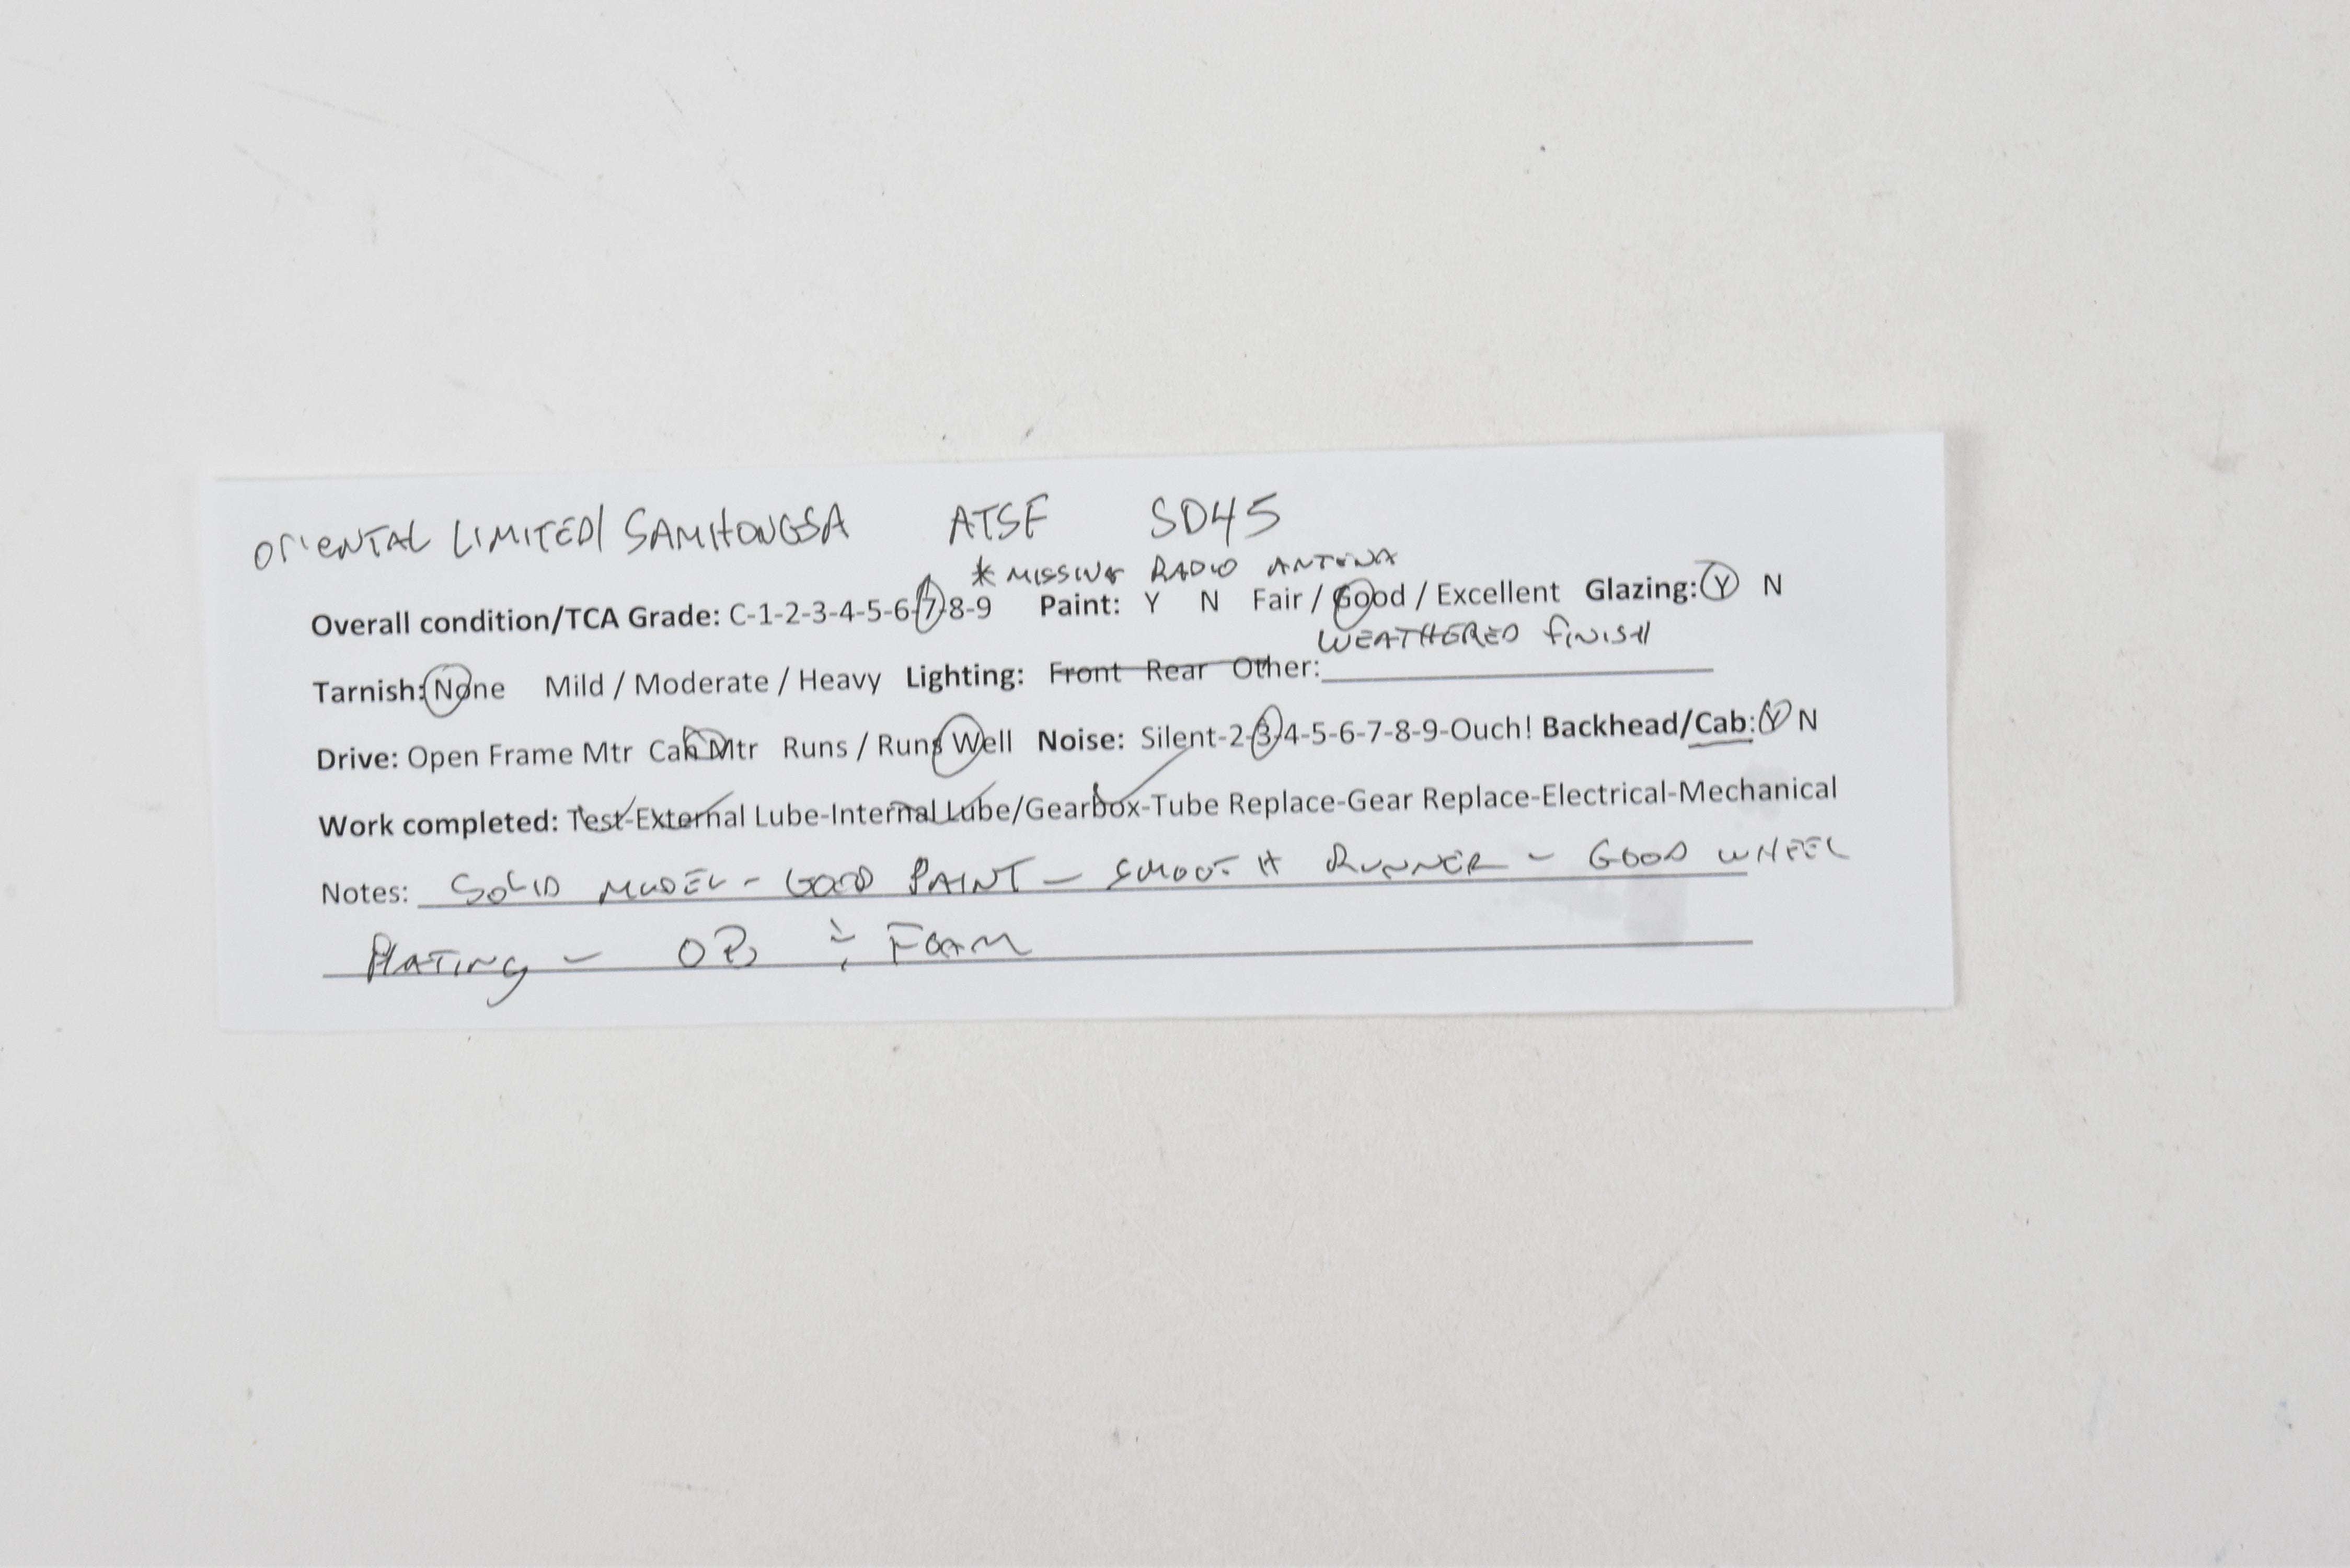 ORIENTAL LIMITED/ SAMHONGSA ATSF SD45
* MISSING RADIO ANTENA
Overall condition/TCA Grade: C-1-2-3-4-5-6-7-8-9 Paint: Y N Fair / Good / Excellent Glazing: Y N
WEATHERED FINISH
Tarnish: None Mild / Moderate / Heavy Lighting: Front Rear Other:
Drive: Open Frame Mtr Can Mtr Runs / Runs Well Noise: Silent-2-3-4-5-6-7-8-9-Ouch! Backhead/Cab: Y N
Work completed: Test-External Lube-Internal Lube/Gearbox-Tube Replace-Gear Replace-Electrical-Mechanical
Notes: SOLID MODEL - GOOD PAINT - SMOOTH RUNNER - GOOD WHEEL
PLATING - OB & FOAM